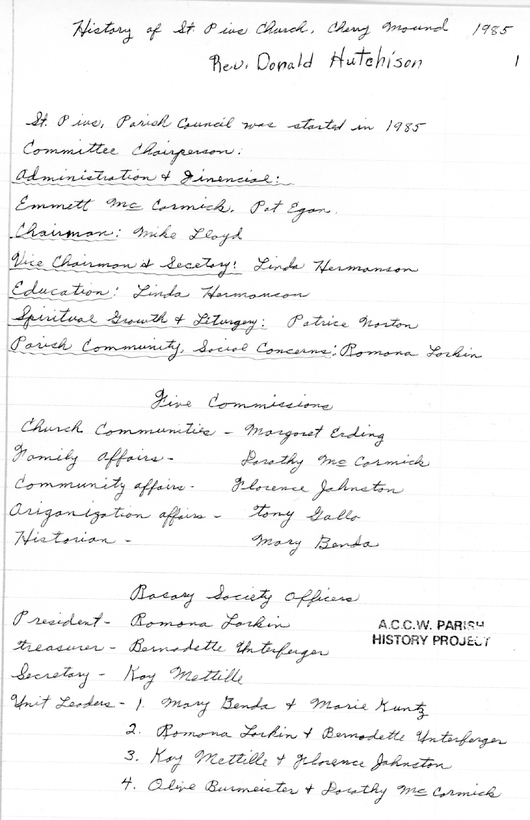 History of St. Pius Church, Chery Mound 1985
Rev. Donald Hutchison 1
St. Pius, Parish Council was started in 1985
Committee Chairperson:
Administration & Finencial:
Emmett Mc Cormick, Pat Egan.
Chairman: Mike Lloyd
Vice Chairman & Secetory: Linda Hermanson
Education: Linda Hermanson
Spiritual Growth & Liturgey: Patrice Norton
Parish Community, Social Concerns: Romona Larkin
Five Commissions
Church Communities - Margaret Erding
Family affairs - Dorathy Mc Cormick
Community affairs - Florence Johnston
Origanization affairs - Tony Gallo
Historian - Mary Benda
Rosary Society Officers
President - Romona Larkin
treasurer - Bernadette Unterferger
Secretary - Kay Mettille
Unit Leaders - 1. Mary Benda & Marie Kuntz
2. Romona Larkin & Bernadette Unterferger
3. Kay Mettille & Florence Johnston
4. Olive Burmeister & Dorathy Mc Cormick
A.C.C.W. PARISH
HISTORY PROJECT